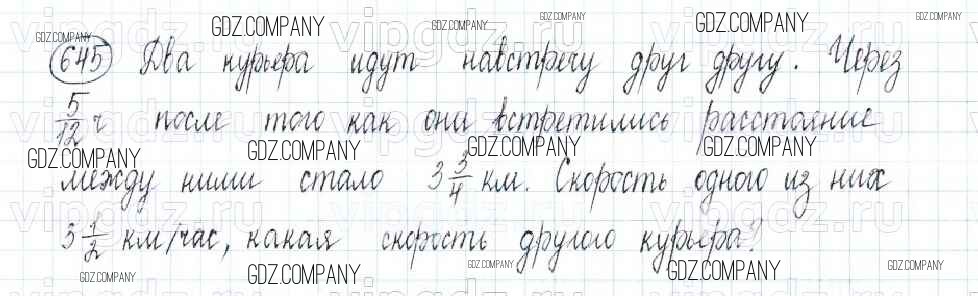 645 Два курьера идут навстречу друг другу. Через
5/12 ч после того как они встретились расстояние
между ними стало 3 3/4 км. Скорость одного из них
3 1/2 км/час, какая скорость другого курьера?
GDZ.COMPANY GDZ.COMPANY GDZ.COMPANY GDZ.COMPANY GDZ.COMPANY GDZ.COMPANY
GDZ.COMPANY GDZ.COMPANY GDZ.COMPANY GDZ.COMPANY
GDZ.COMPANY GDZ.COMPANY GDZ.COMPANY GDZ.COMPANY GDZ.COMPANY
vipgdz.ru